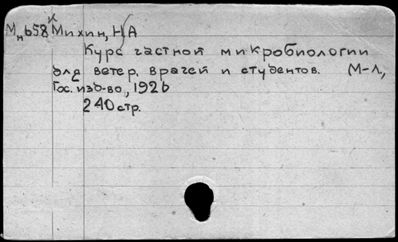 К
Мн658 Михин, Н А
Курс частной микробиологии
для ветер. врачей и студентов. М-Л,
Гос. изд-во, 1926
240 стр.